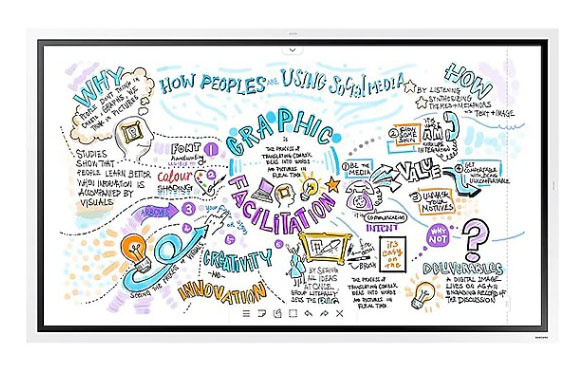 WHY
PEOPLE DON'T THINK IN
CHARTS, GRAPHS, WE
THINK IN PICTURES
STUDIES
SHOW THAT
PEOPLE LEARN BETTER
WHEN INFORMATION IS
ACCOMPANIED BY
VISUALS
HOW PEOPLES ARE USING SOCIAL MEDIA
HOW
BY LISTENING
SYNTHESIZING
THEMES + METAPHORS
TEXT + IMAGE
FONT
1
colour
2
SHADING
ARROWS
3
GRAPHIC
IS THE PROCESS OF
TRANSLATING COMPLEX
IDEAS INTO WORDS
AND PICTURES IN
REAL TIME
FACILITATION
① BE THE
MEDIA
②
VALUE
③ UNMASK
YOUR
MOTIVES
④ GET
COMFORTABLE
WITH BEING
UNCOMFORTABLE
COMMUNICATION
INTENT
WHY
NOT
?
CREATIVITY
AND
INNOVATION
SEEING THE BIGGER PICTURE
BY SEEING
ALL IDEAS
AT ONCE,
GROUP LITERALLY
SEES THE BIGGER
BRUSH
THE PROCESS OF
TRANSLATING COMPLEX
IDEAS INTO WORDS
AND PICTURES IN
REAL TIME
it's
easy
DELIVERABLES
A DIGITAL IMAGE
LIVES ON AS AN
ENGAGING RECORD OF
THE DISCUSSION
SAMSUNG